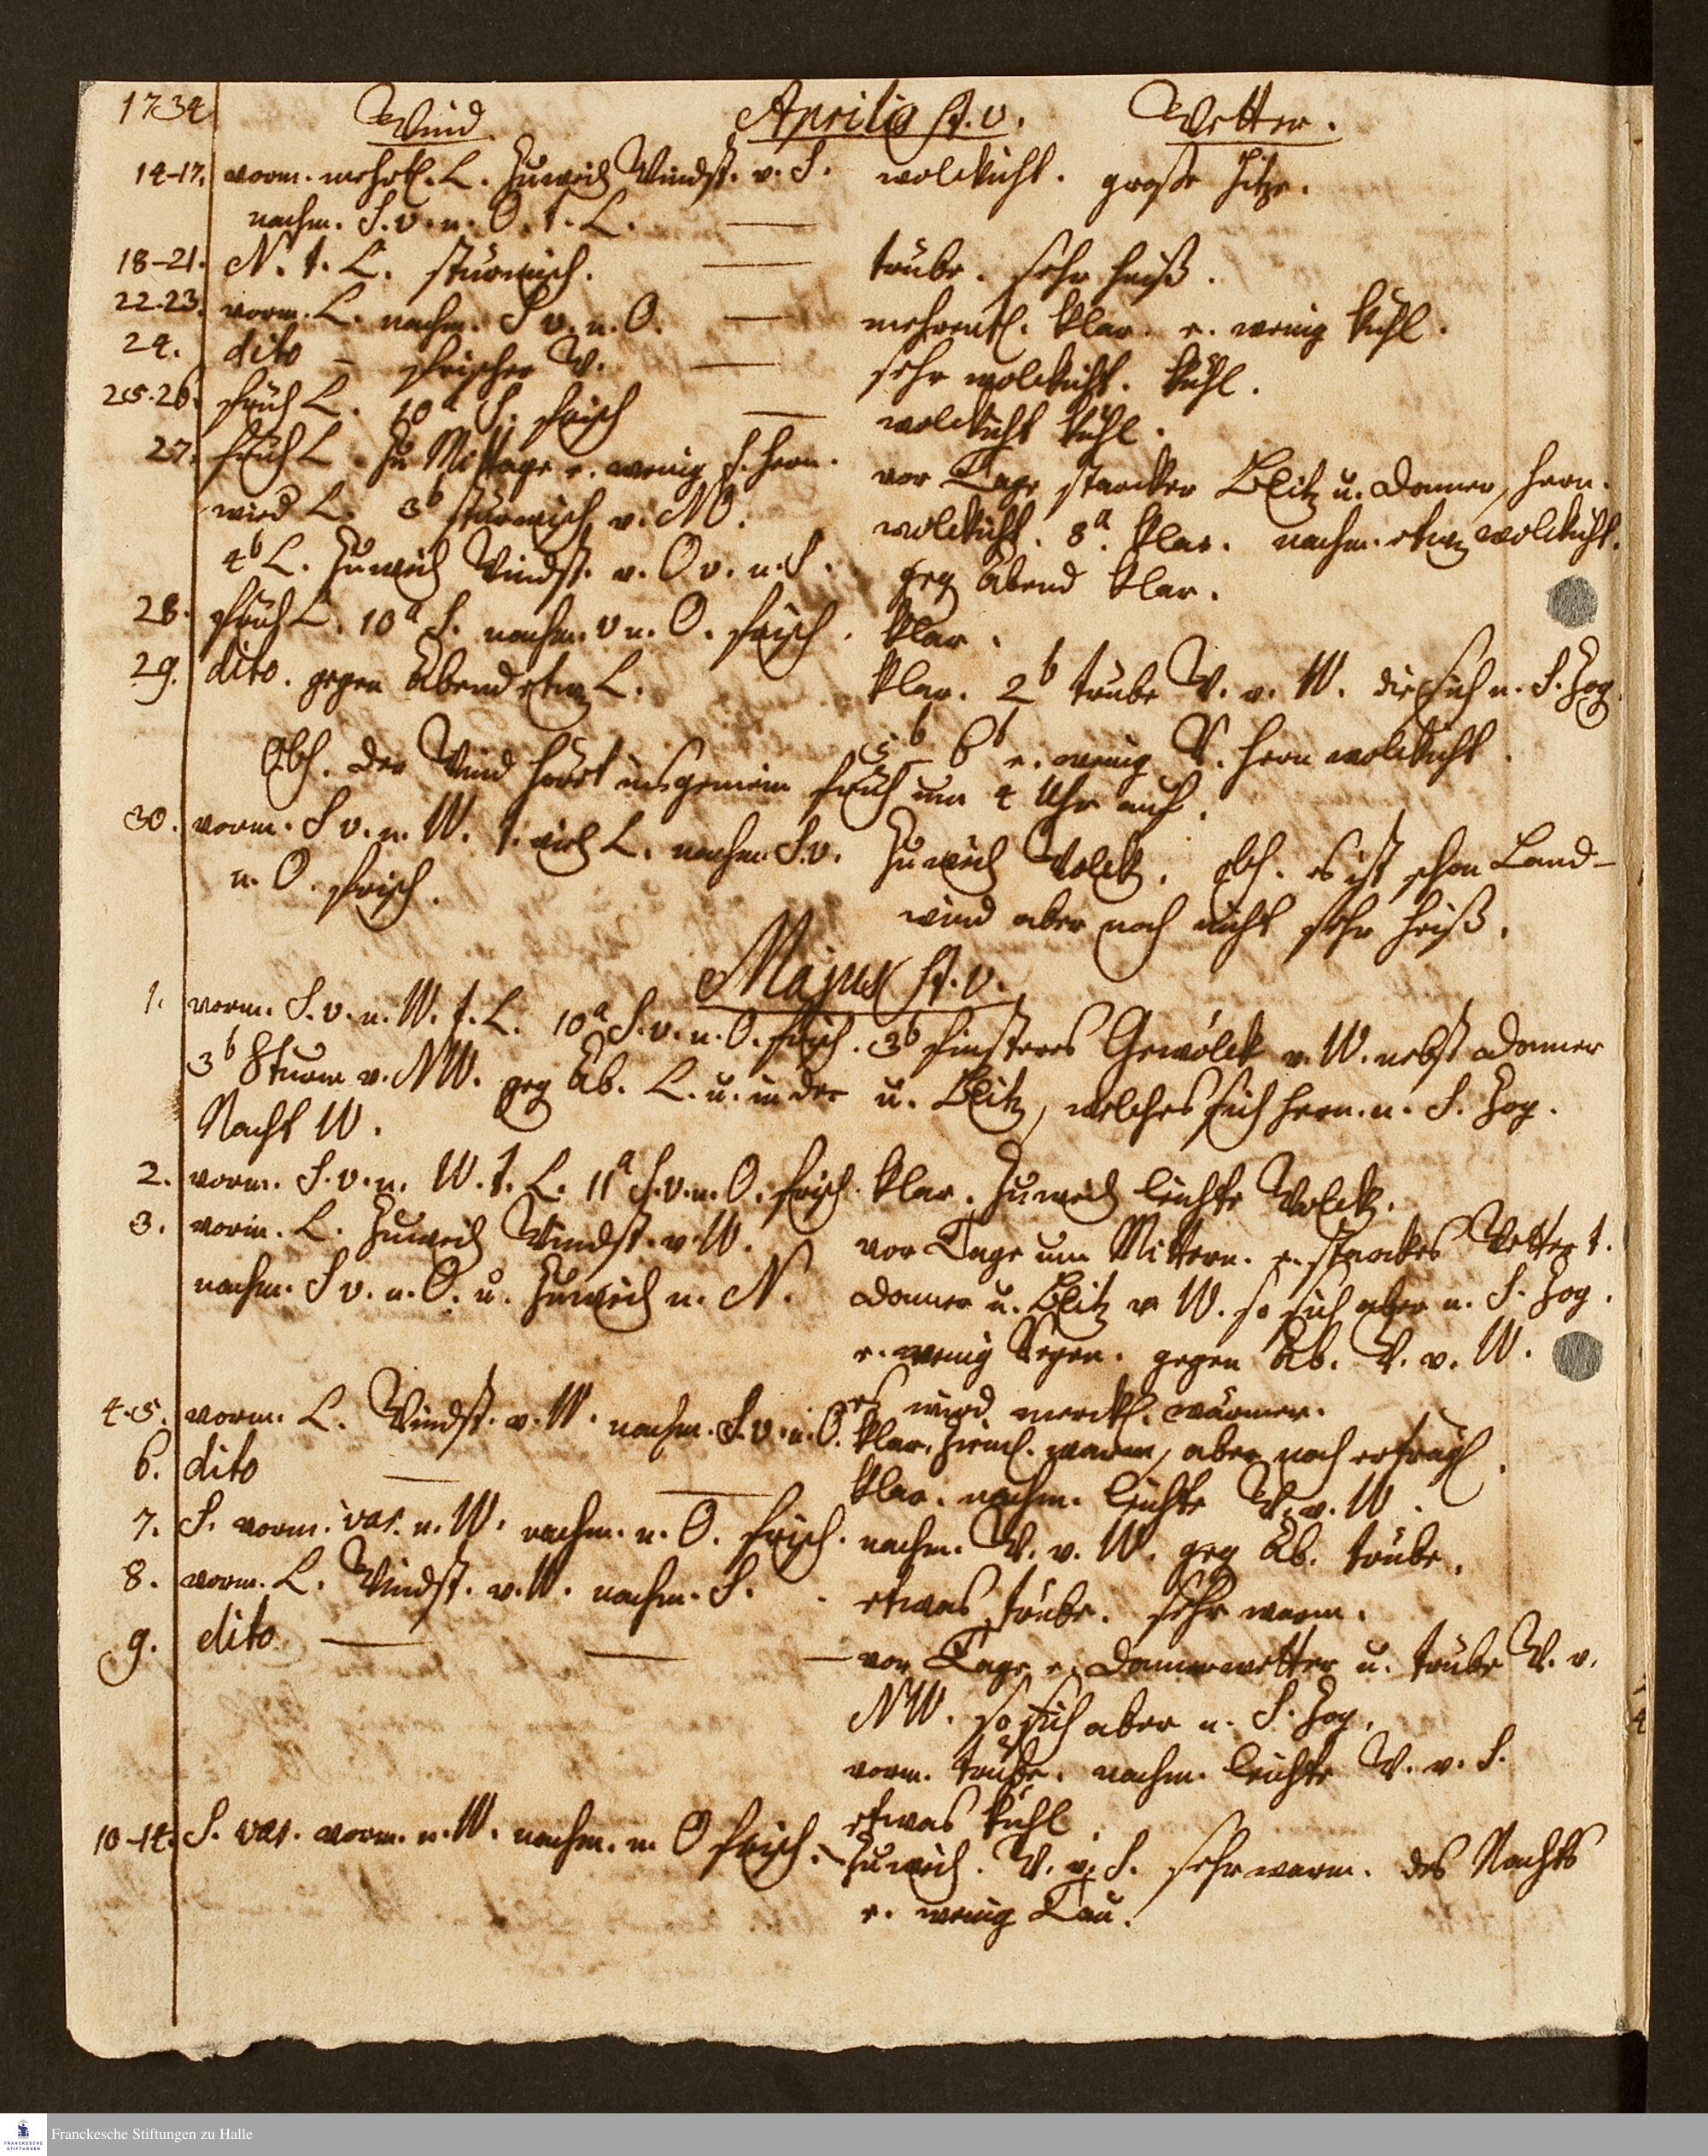 1734 Wind. Aprilis st. v. Wetter.
14-17. vorm. mehrtl. L. zuweil Windst. v. S. wolckicht. große Hitze.
nachm. S. v. n. O. t. L. —
18-21. N. t. L. stürmisch. — trübe. sehr heiß.
22-23. vorm. L. nachm. S v. n. O. — mehrentl. klar. e. wenig kühl.
24. dito – frischer W. — sehr wolckicht. kühl.
25-26. früh L. 10a S. frisch — wolckicht kühl.
27. früh L. zu Mittage e. wenig S. hern. vor Tage starcker Blitz u. Donner, hern.
wird L. 3b stürmisch v. NO. wolckicht. 8a. klar. nachm. etwz wolckicht.
4b L. zuweil Windst. v. O v. n. S. geg Abend klar.
28. früh L. 10a S. nachm. v n. O. frisch. klar.
29. dito. gegen Abend etwz L. klar. 2b trübe W. v. W. die sich n. S. zog.
5b 6b e. wenig R. hern wolckicht.
Obs. der Wind höret insgemein früh um 4 Uhr auf.
30. vorm. S v. n. W. t. viel L. nachm. S. v. zuweil Wolck. Obs. es ist schon Land-
n. O. frisch. wind aber noch nicht sehr heiß.
Majus st. v.
1. vorm. S. v. n. W. t. L. 10a S. v. n. O. frisch. 3b finsteres Gewölck v. W. nebst Donner
3b Sturm v. NW. geg Ab. L. u. in der u. Blitz, welches sich hern. n. S. zog.
Nacht W.
2. vorm. S. v. n. W. t. L. 11a S. v. n. O. frisch. klar. zuweil leichte Wolck.
3. vorm. L. zuweil Windst. v. W. vor Tage um Mittern. e. starckes Wetter t.
nachm. S v. n. O. u. zuweil n. N. Donner u. Blitz v W. so sich aber n. S. zog.
e. wenig Regen. gegen Ab. W. v. W.
es wird merckl. wärmer.
4-5. vorm. L. Windst. v. W. nachm. S. v. n. O. klar. zieml. warm, aber noch erträgl.
6. dito — — klar. nachm. leichte W. v. W.
7. S. vorm. var. n. W. nachm. n. O. frisch. nachm. W. v. W. geg Ab. trübe.
8. vorm. L. Windst. v. W. nachm. S. etwas trübe. sehr warm.
9. dito — — — vor Tage e. Donnerwetter u. trübe W. v.
NW. so sich aber n. S. zog.
vorm. trübe. nachm. leichte W. v. S.
etwas kühl.
10-14. S. var. vorm. n. W. nachm. n. O frisch. – zuweil. W. v. S. sehr warm. des Nachts
e. wenig Tau.
Franckesche Stiftungen zu Halle